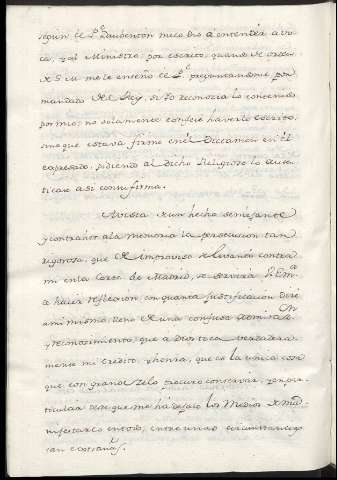 según el P.e Daubenton me lo dio á entender a vo
ca, y al Ministro, por escrito, quando de orden
de S. M. me le enseñó el P.e preguntandome por
mandato del Rey, si Yo reconocia lo contenido
por mio; no solamente confesé haverlo escrito,
sino que estava firme en el Dictamen en él
expresado, pidiendo al dicho Religioso lo auten
ticase asi con mi firma.
A vista de un hecho semejante
y contrahido a la memoria la persecucion tan
rigorosa, que se levantó contra
mi en la Corte de Madrid, se servirá V. Em.a
de hacer reflexion, con quanta justificacion diré
a mi mismo, lleno de una confusa admiraz.on
y reconocimiento, que a Dios toca verdadera
mente mi credito, y honra, que es la unica cosa
que con grande zelo procuro conservar, y en par
ticular desde que me há dejado los Medios de ma
nifestarlo en todo, entre unas circunstancias
tan extrañas.